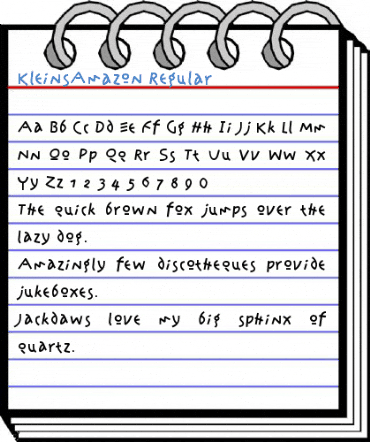 KleinsAmazon Regular
Aa Bb Cc Dd Ee Ff Gg Hh Ii Jj Kk Ll Mm
Nn Oo Pp Qq Rr Ss Tt Uu Vv Ww Xx
Yy Zz 1 2 3 4 5 6 7 8 9 0
The quick brown fox jumps over the
lazy dog.
Amazingly few discotheques provide
jukeboxes.
Jackdaws love my big sphinx of
quartz.